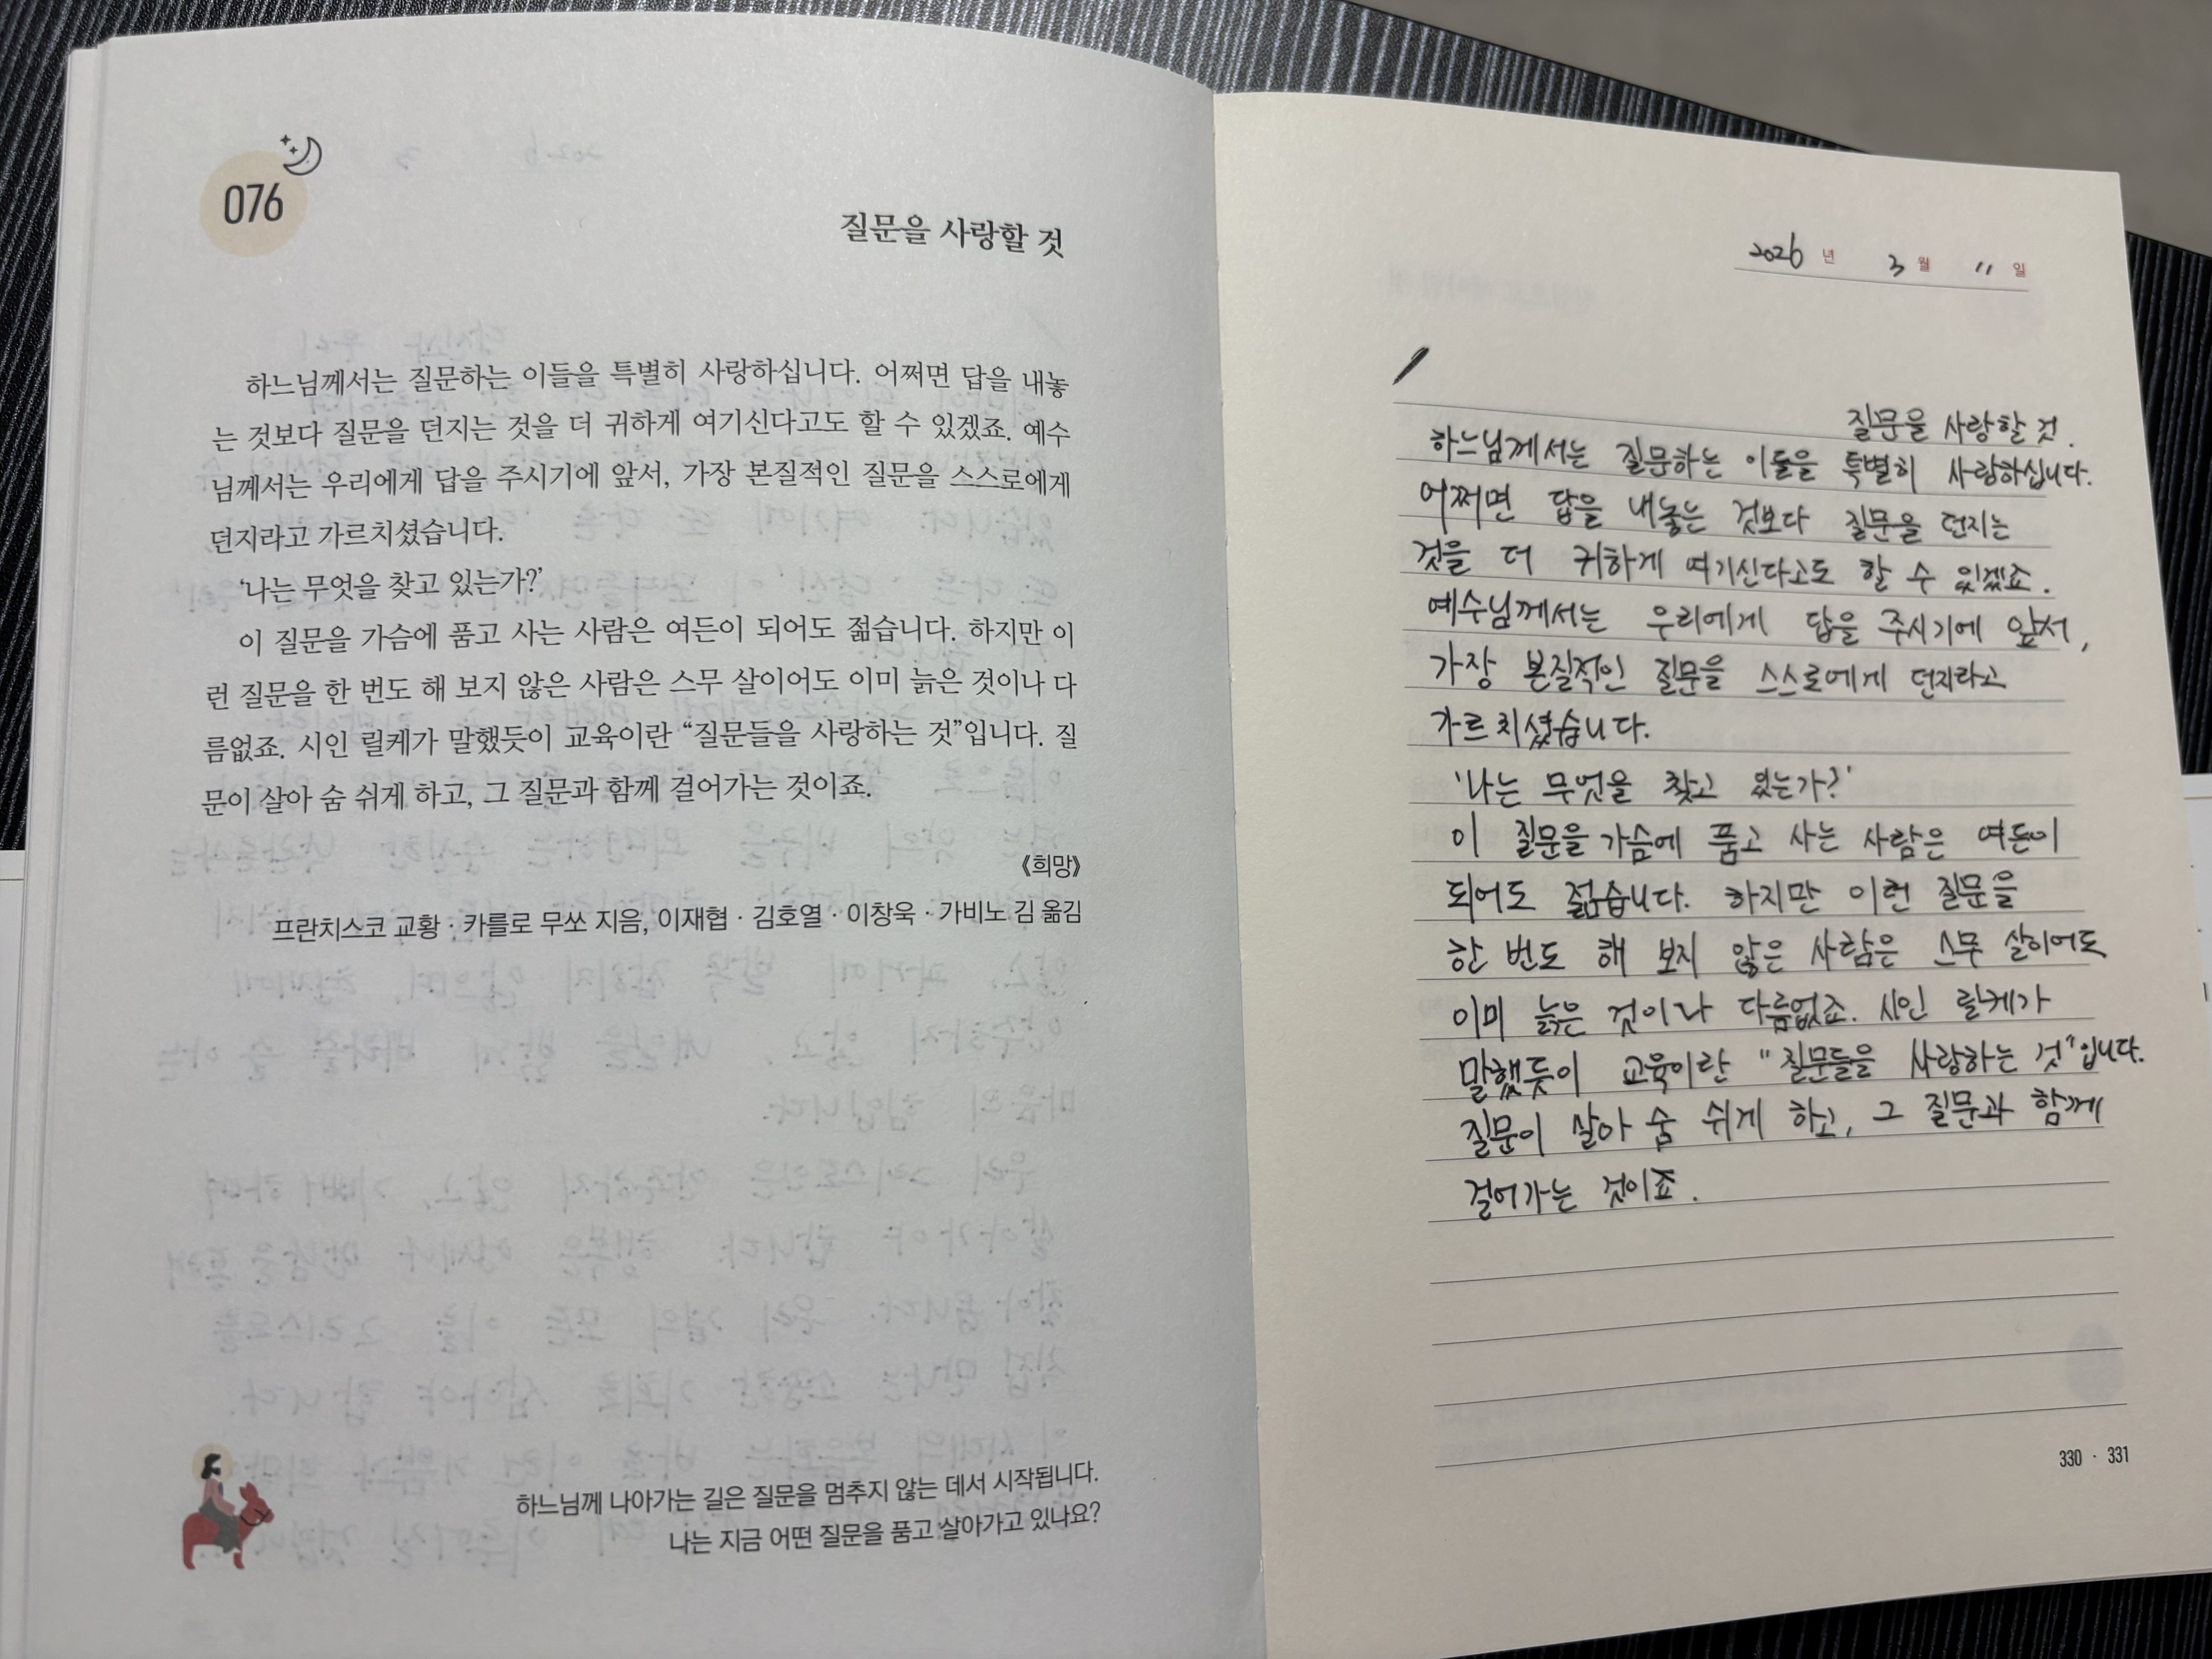 076
질문을 사랑할 것
하느님께서는 질문하는 이들을 특별히 사랑하십니다. 어쩌면 답을 내놓
는 것보다 질문을 던지는 것을 더 귀하게 여기신다고도 할 수 있겠죠. 예수
님께서는 우리에게 답을 주시기에 앞서, 가장 본질적인 질문을 스스로에게
던지라고 가르치셨습니다.
‘나는 무엇을 찾고 있는가?’
이 질문을 가슴에 품고 사는 사람은 여든이 되어도 젊습니다. 하지만 이
런 질문을 한 번도 해 보지 않은 사람은 스무 살이어도 이미 늙은 것이나 다
름없죠. 시인 릴케가 말했듯이 교육이란 “질문들을 사랑하는 것”입니다. 질
문이 살아 숨 쉬게 하고, 그 질문과 함께 걸어가는 것이죠.
《희망》
프란치스코 교황 · 카를로 무쏘 지음, 이재협 · 김호열 · 이창욱 · 가비노 김 옮김
하느님께 나아가는 길은 질문을 멈추지 않는 데서 시작됩니다.
나는 지금 어떤 질문을 품고 살아가고 있나요?
2026 년 3 월 11 일
질문을 사랑할 것.
하느님께서는 질문하는 이들을 특별히 사랑하십니다.
어쩌면 답을 내놓는 것보다 질문을 던지는
것을 더 귀하게 여기신다고도 할 수 있겠죠.
예수님께서는 우리에게 답을 주시기에 앞서,
가장 본질적인 질문을 스스로에게 던지라고
가르치셨습니다.
'나는 무엇을 찾고 있는가?'
이 질문을 가슴에 품고 사는 사람은 여든이
되어도 젊습니다. 하지만 이런 질문을
한 번도 해 보지 않은 사람은 스무 살이어도
이미 늙은 것이나 다름없죠. 시인 릴케가
말했듯이 교육이란 "질문들을 사랑하는 것"입니다.
질문이 살아 숨 쉬게 하고, 그 질문과 함께
걸어가는 것이죠.
330 · 331